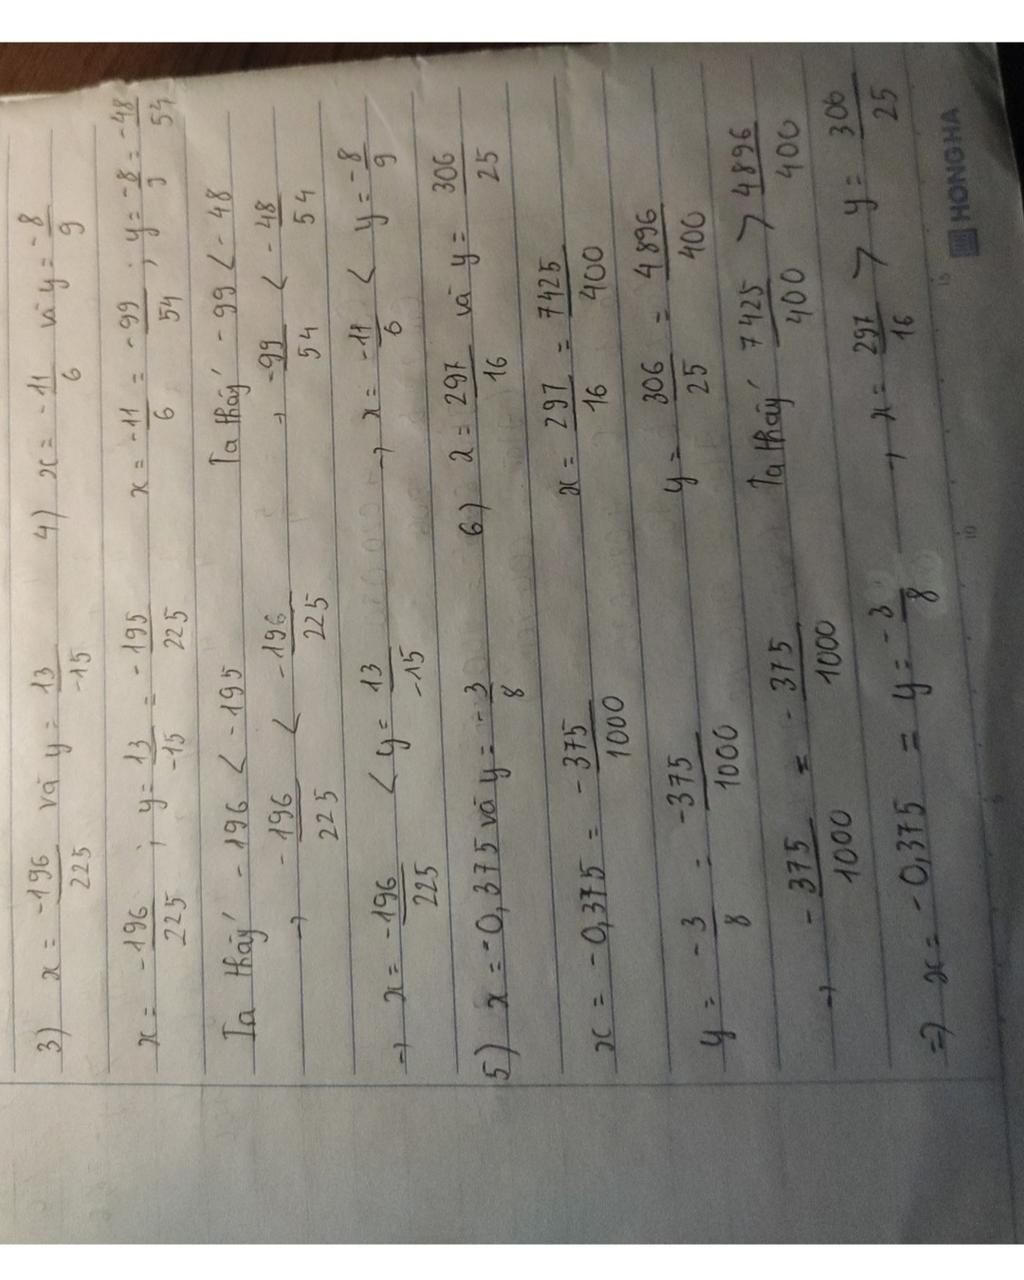 3) x = -196/225 và y = 13/-15
x = -196/225 ; y = 13/-15 = -195/225
Ta thấy -196 < -195
→ -196/225 < -196/225
→ x = -196/225 < y = 13/-15
5) x = -0,375 và y = -3/8
x = -0,375 = -375/1000
y = -3/8 = -375/1000
→ -375/1000 = -375/1000
⇒ x = -0,375 = y = -3/8
4) x = -11/6 và y = -8/9
x = -11/6 = -99/54 ; y = -8/9 = -48/54
Ta thấy -99 < -48
→ -99/54 < -48/54
→ x = -11/6 < y = -8/9
6) x = 297/16 và y = 306/25
x = 297/16 = 7425/400
y = 306/25 = 4896/400
Ta thấy 7425/400 > 4896/400
→ x = 297/16 > y = 306/25
5 10 15
HONG HA